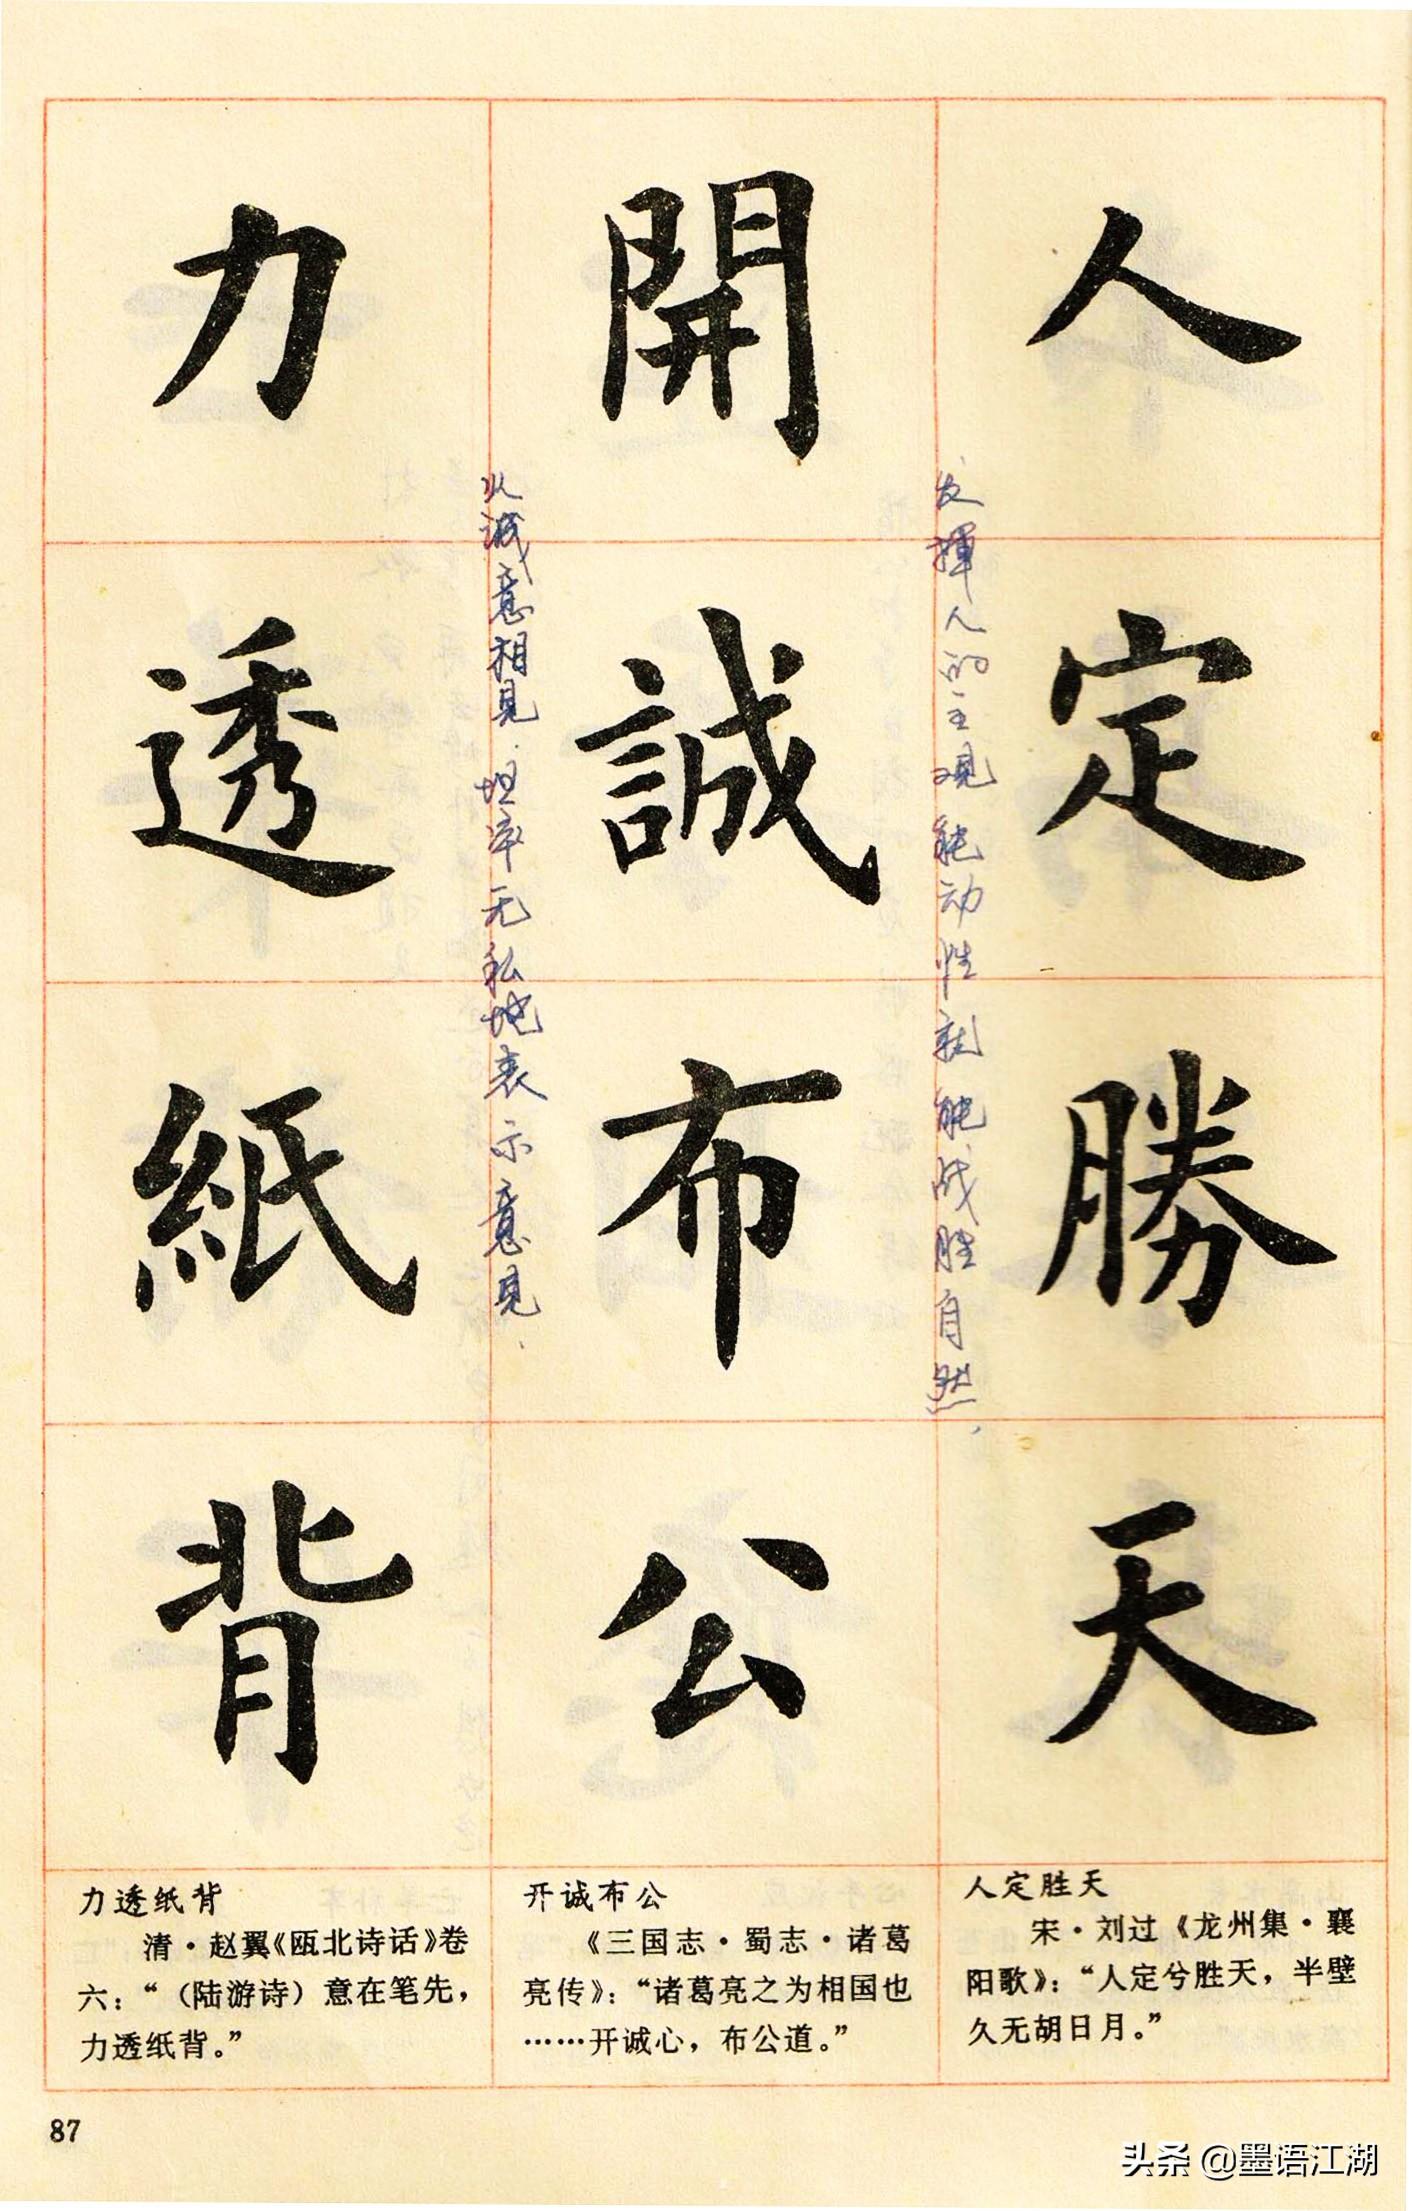 人定勝天
发揮人的主观能动性就能战胜自然、
開誠布公
以诚意相見.坦率无私地表示意見、
力透紙背
人定胜天
宋·刘过《龙州集·襄
阳歌》：“人定兮胜天，半壁
久无胡日月。”
开诚布公
《三国志·蜀志·诸葛
亮传》：“诸葛亮之为相国也
……开诚心，布公道。”
力透纸背
清·赵翼《瓯北诗话》卷
六：“（陆游诗）意在笔先，
力透纸背。”
87
头条 @墨语江湖